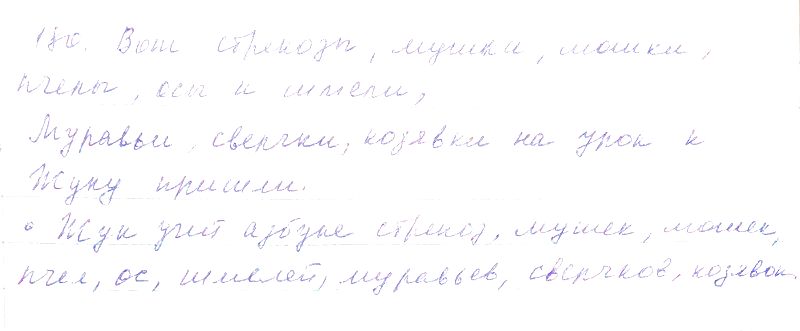 180. Вот стрекозы, мушки, мошки,
пчелы, осы и шмели,
Муравьи, сверчки, козявки на урок к
Жуку пришли.
• Жук учит азбуке стрекоз, мушек, мошек,
пчел, ос, шмелей, муравьев, сверчков, козявок.